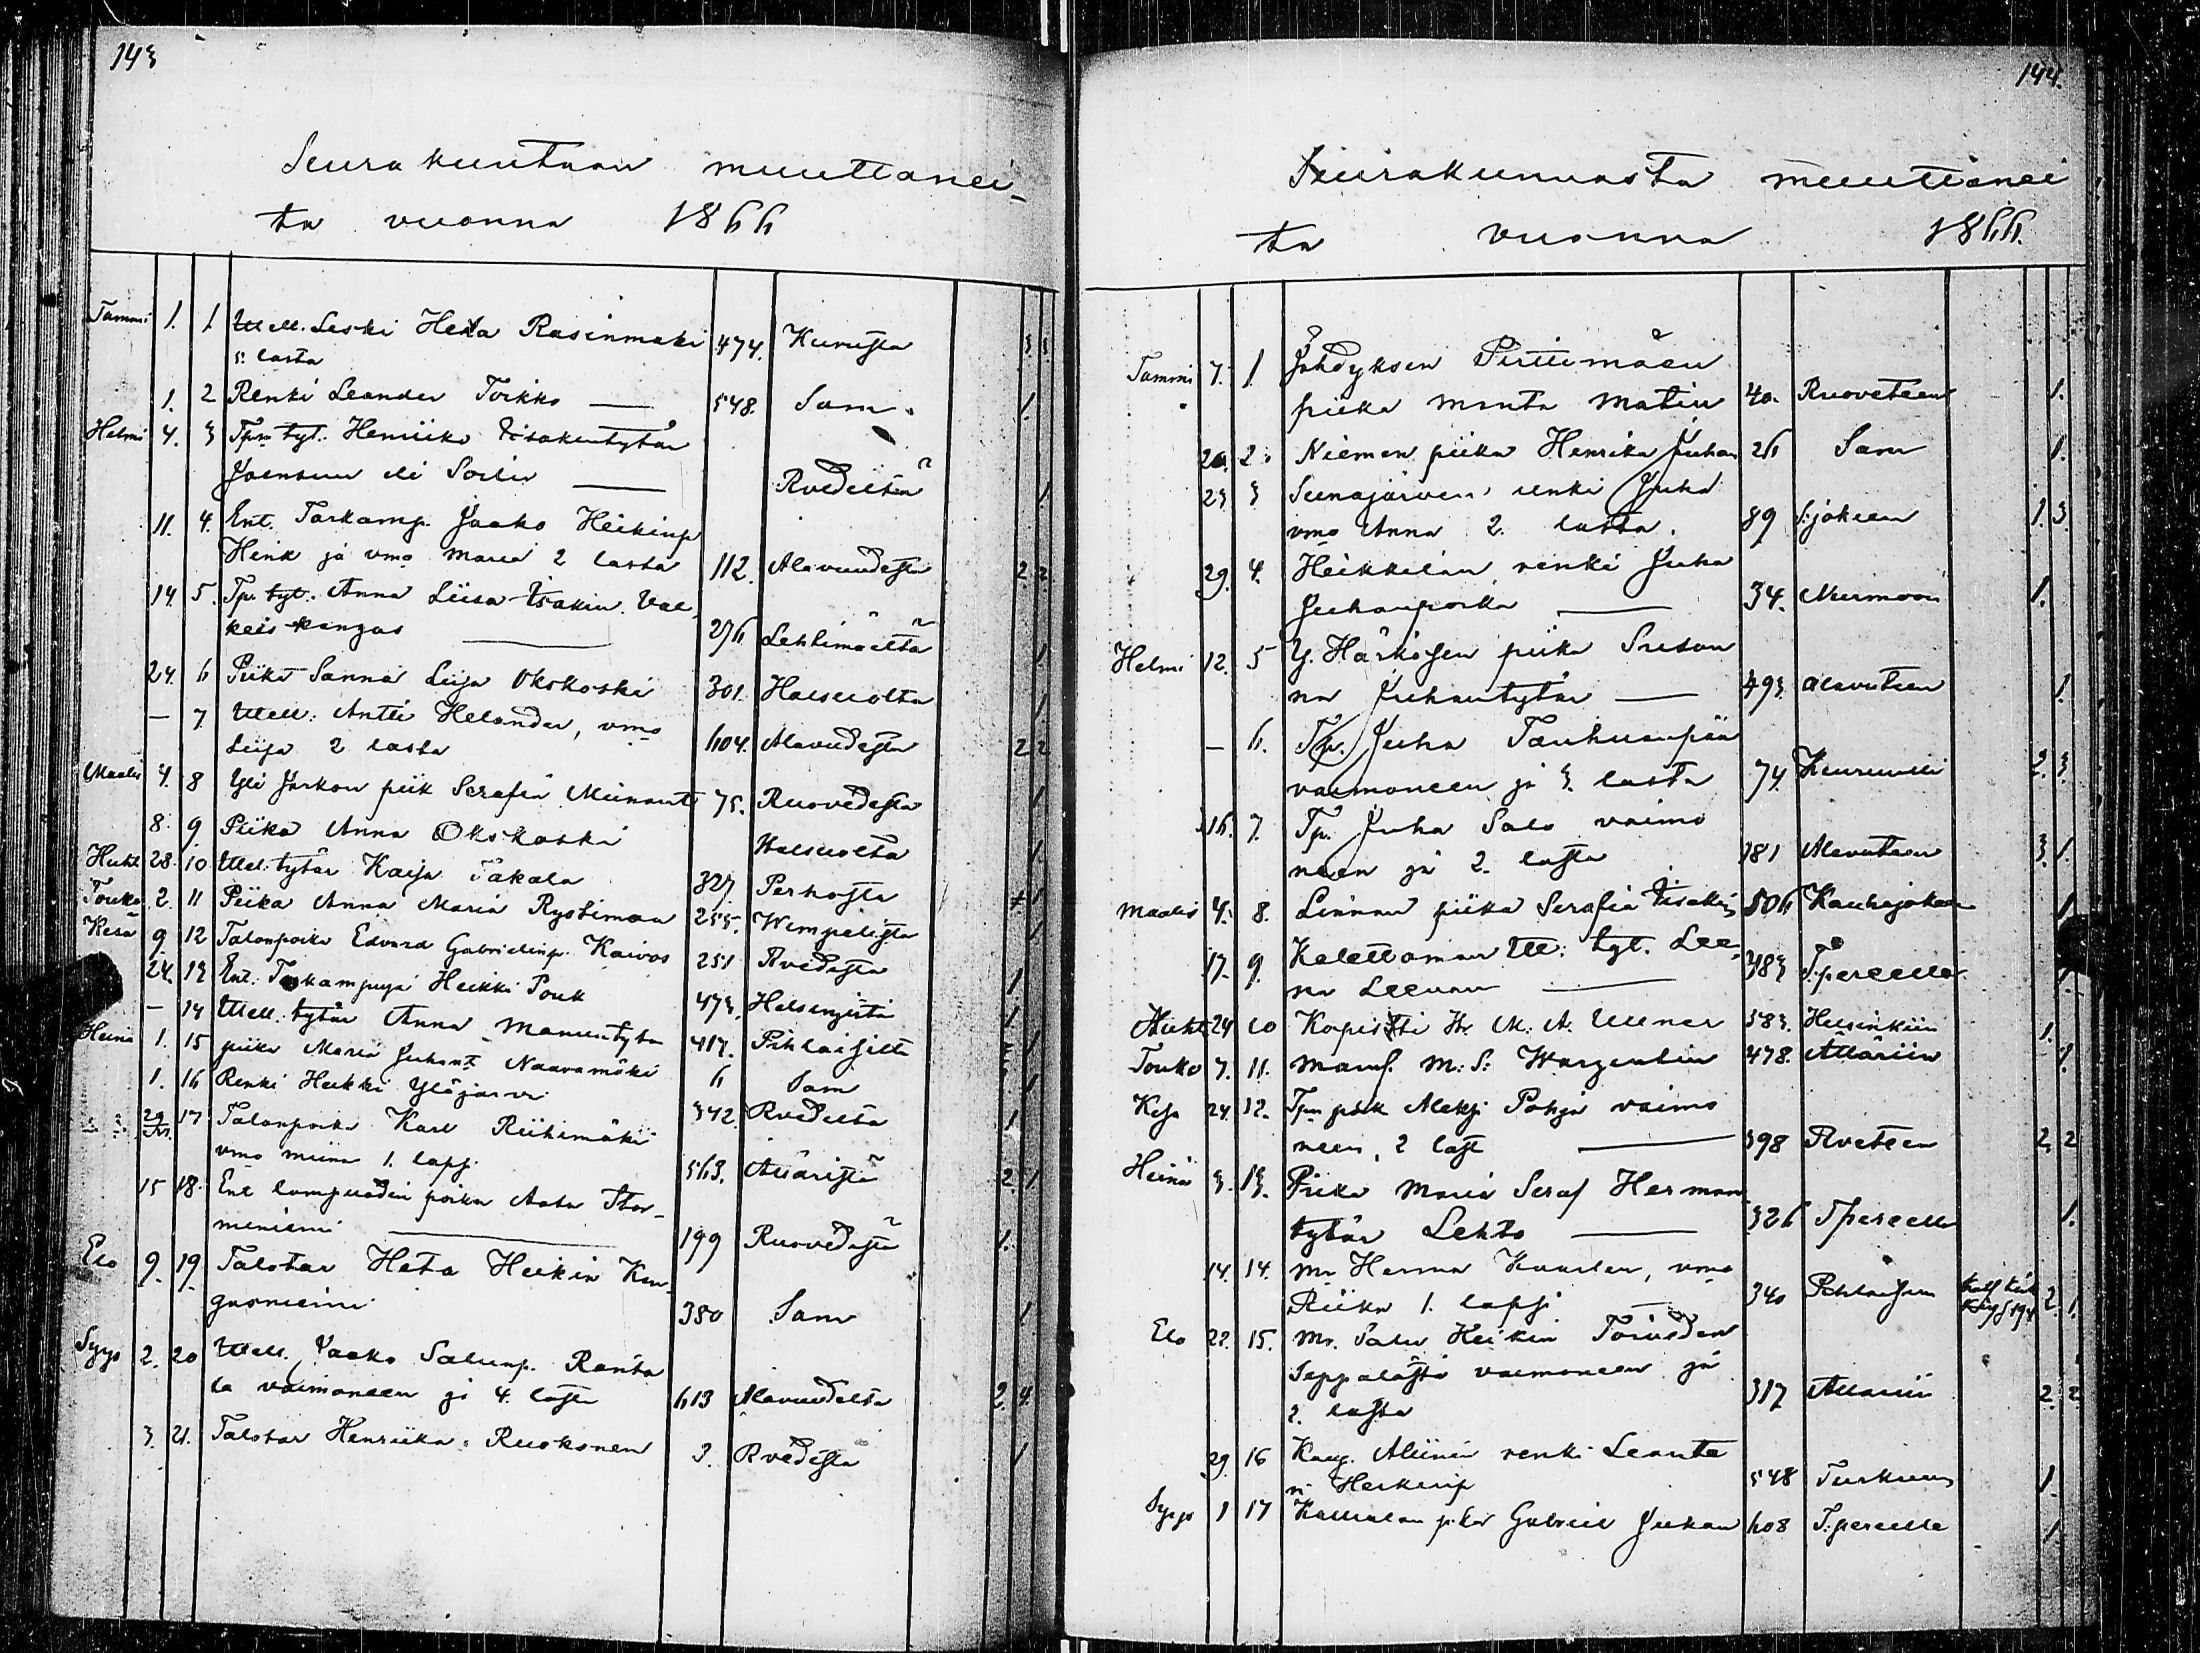 143
Seurakuntaan muuttanei-
ta vuonna 1866
Tammi 1. 1. Itsell. Leski Heta Rasinmäki 474. Kurusta 3. 3.
5. lasta
1. 2 Renki Leander Toikko — 548. Sam. 1.
Helmi 4. 3 Tpn tyt. Henriika Iisakintytär
Joensuu eli Soilin — Rvedeltä 1.
11. 4. Ent. Torkamp. Jaako Heikinp
Heink ja vmo Maria 2 lasta 112. Alavuudesta 2 2
14. 5. Tp. tyt. Anna Liisa Isakin. Val-
keiskangas — 276 Lehtimäeltä 1
24. 6 Piika Sanna Liisa Okskoski 301. Halsuolta 1.
— 7. Itsell. Antti Helander, vmo
Liisa 2 lasta 604. Alavudesta 2 2
Maalis 4. 8 Yli Jaskon piik Serafia 75. Ruovedesta 1
8. 9. Piika Anna Okskoski Halsuolta 1.
Huht 28. 10 Itsel. tytär Kaisa Takala 327. Perhosta 1
Touko 2. 11 Piika Anna Maria Rystimaa 255. Wimpelistä 1
Kesä 9. 12 Talonpoika Edvard Gabrielinp. Kaivos 251 Rvedestä 1
24. 13 Ent. Torkampuja Heikki Pouk 473. Helsingistä 1.
— 14 Itsell. tytär Anna Manuntyta 417. Pihlaisilta 1
Heinä 1. 15 piika Maria Juhant. Naavamäki 6 Sam 1
1. 16 Renki Heikki Yläjärvi 342. Rvedeltä 1
29 17 Talonpoika Karl Riihimäki
vmo Miina 1. lapsi 563. Ätsäristä 2. 1.
15 18. Ent lampuodin poika Aata Stor-
meniemi — 199 Ruovedestä 1.
Elo 9. 19. Talotar Heta Heikin Kan-
gasniemi 380 Sam 1
Syys 2. 20 Itsell. Jaako Salunp. Ranta
la vaimoneen ja 4. lasta 613 Alavuudelta 2. 4.
3. 21. Talotar Henriika Ruokonen 3. Rvedestä 1
144.
Seurakunnasta muuttanei
ta vuonna 1866.
Tammi 7. 1. Johdyksen Pirttimäen
piika Manta Matin 40. Ruoveteen 1.
20. 2. Niemen piika Henrika Juhan 26 Sam 1.
23 3 Seinäjärven renki Juha
vmo Anna 2. lasta. 89 S:jokeen 1. 3.
29. 4. Heikkilän renki Juha
Juhanpoika — 34. 1.
Helmi 12. 5 Y. Härkösen piika Susan
na Juhantytär — 493. Alavuteen 1.
— 6. Tp. Juha Tanhuanpää
vaimoneen ja 3. lasta 74. Keuruulle 2. 3.
16. 7. Tp. Juha Salo vaimo
neen ja 2. lasta 181 Alavuteen 3. 1.
Maalis 4. 8. Linnan piika Serafia Iisakin 506 Kauhajokeen 1
17. 9. Kalettoman Its: tyt. Lee-
na Leenan — 383 T:pereelle 1.
Huht 24 10 Kopisti Hr. M: A: 583. Helsinkiin 1.
Touko 7. 11. Mams. M: S: Wargentin 478. Ätsäriin 1.
Kesä 24. 12. Tpn poik Aleksi Pohja vaimo
neen, 2 last — 398 Rveteen 2 2
Heinä 3. 13. Piika Maria Seraf Herman
tytär Lehto — 326 T:pereelle 1.
14. 14. Mr Herman Kaarlen, vmo
Riika 1. lapsi — 340 Pihlaisiin 2. 1.
Elo 22. 15. Mr. Salu Heikin
Seppalästä vaimoneen ja
2. lasta 317 Ätsäriin 2. 2
29. 16 Kaup. Aliinin renki Leante
ri Heikinp 548 Turkuun 1.
Syys 1 17 Gabriel Juhan 608 T:pereelle 1.